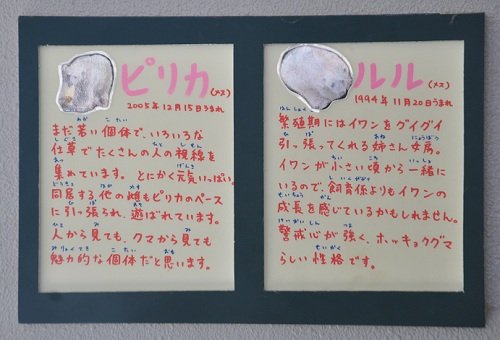 ピリカ(メス)
2005年12月15日うまれ
まだ若い個体で、いろいろな
仕草でたくさんの人の視線を
集めています。とにかく元気いっぱい。
同居する他の雌もピリカのペース
に引っ張られ、遊ばれています。
人から見ても、クマから見ても
魅力的な個体だと思います。
ルル(メス)
1994年11月20日うまれ
繁殖期にはイワンをグイグイ
引っ張ってくれる姉さん女房。
イワンが小さい頃から一緒に
いるので、飼育係よりもイワンの
成長を感じているかもしれません。
警戒心が強く、ホッキョクグマ
らしい性格です。